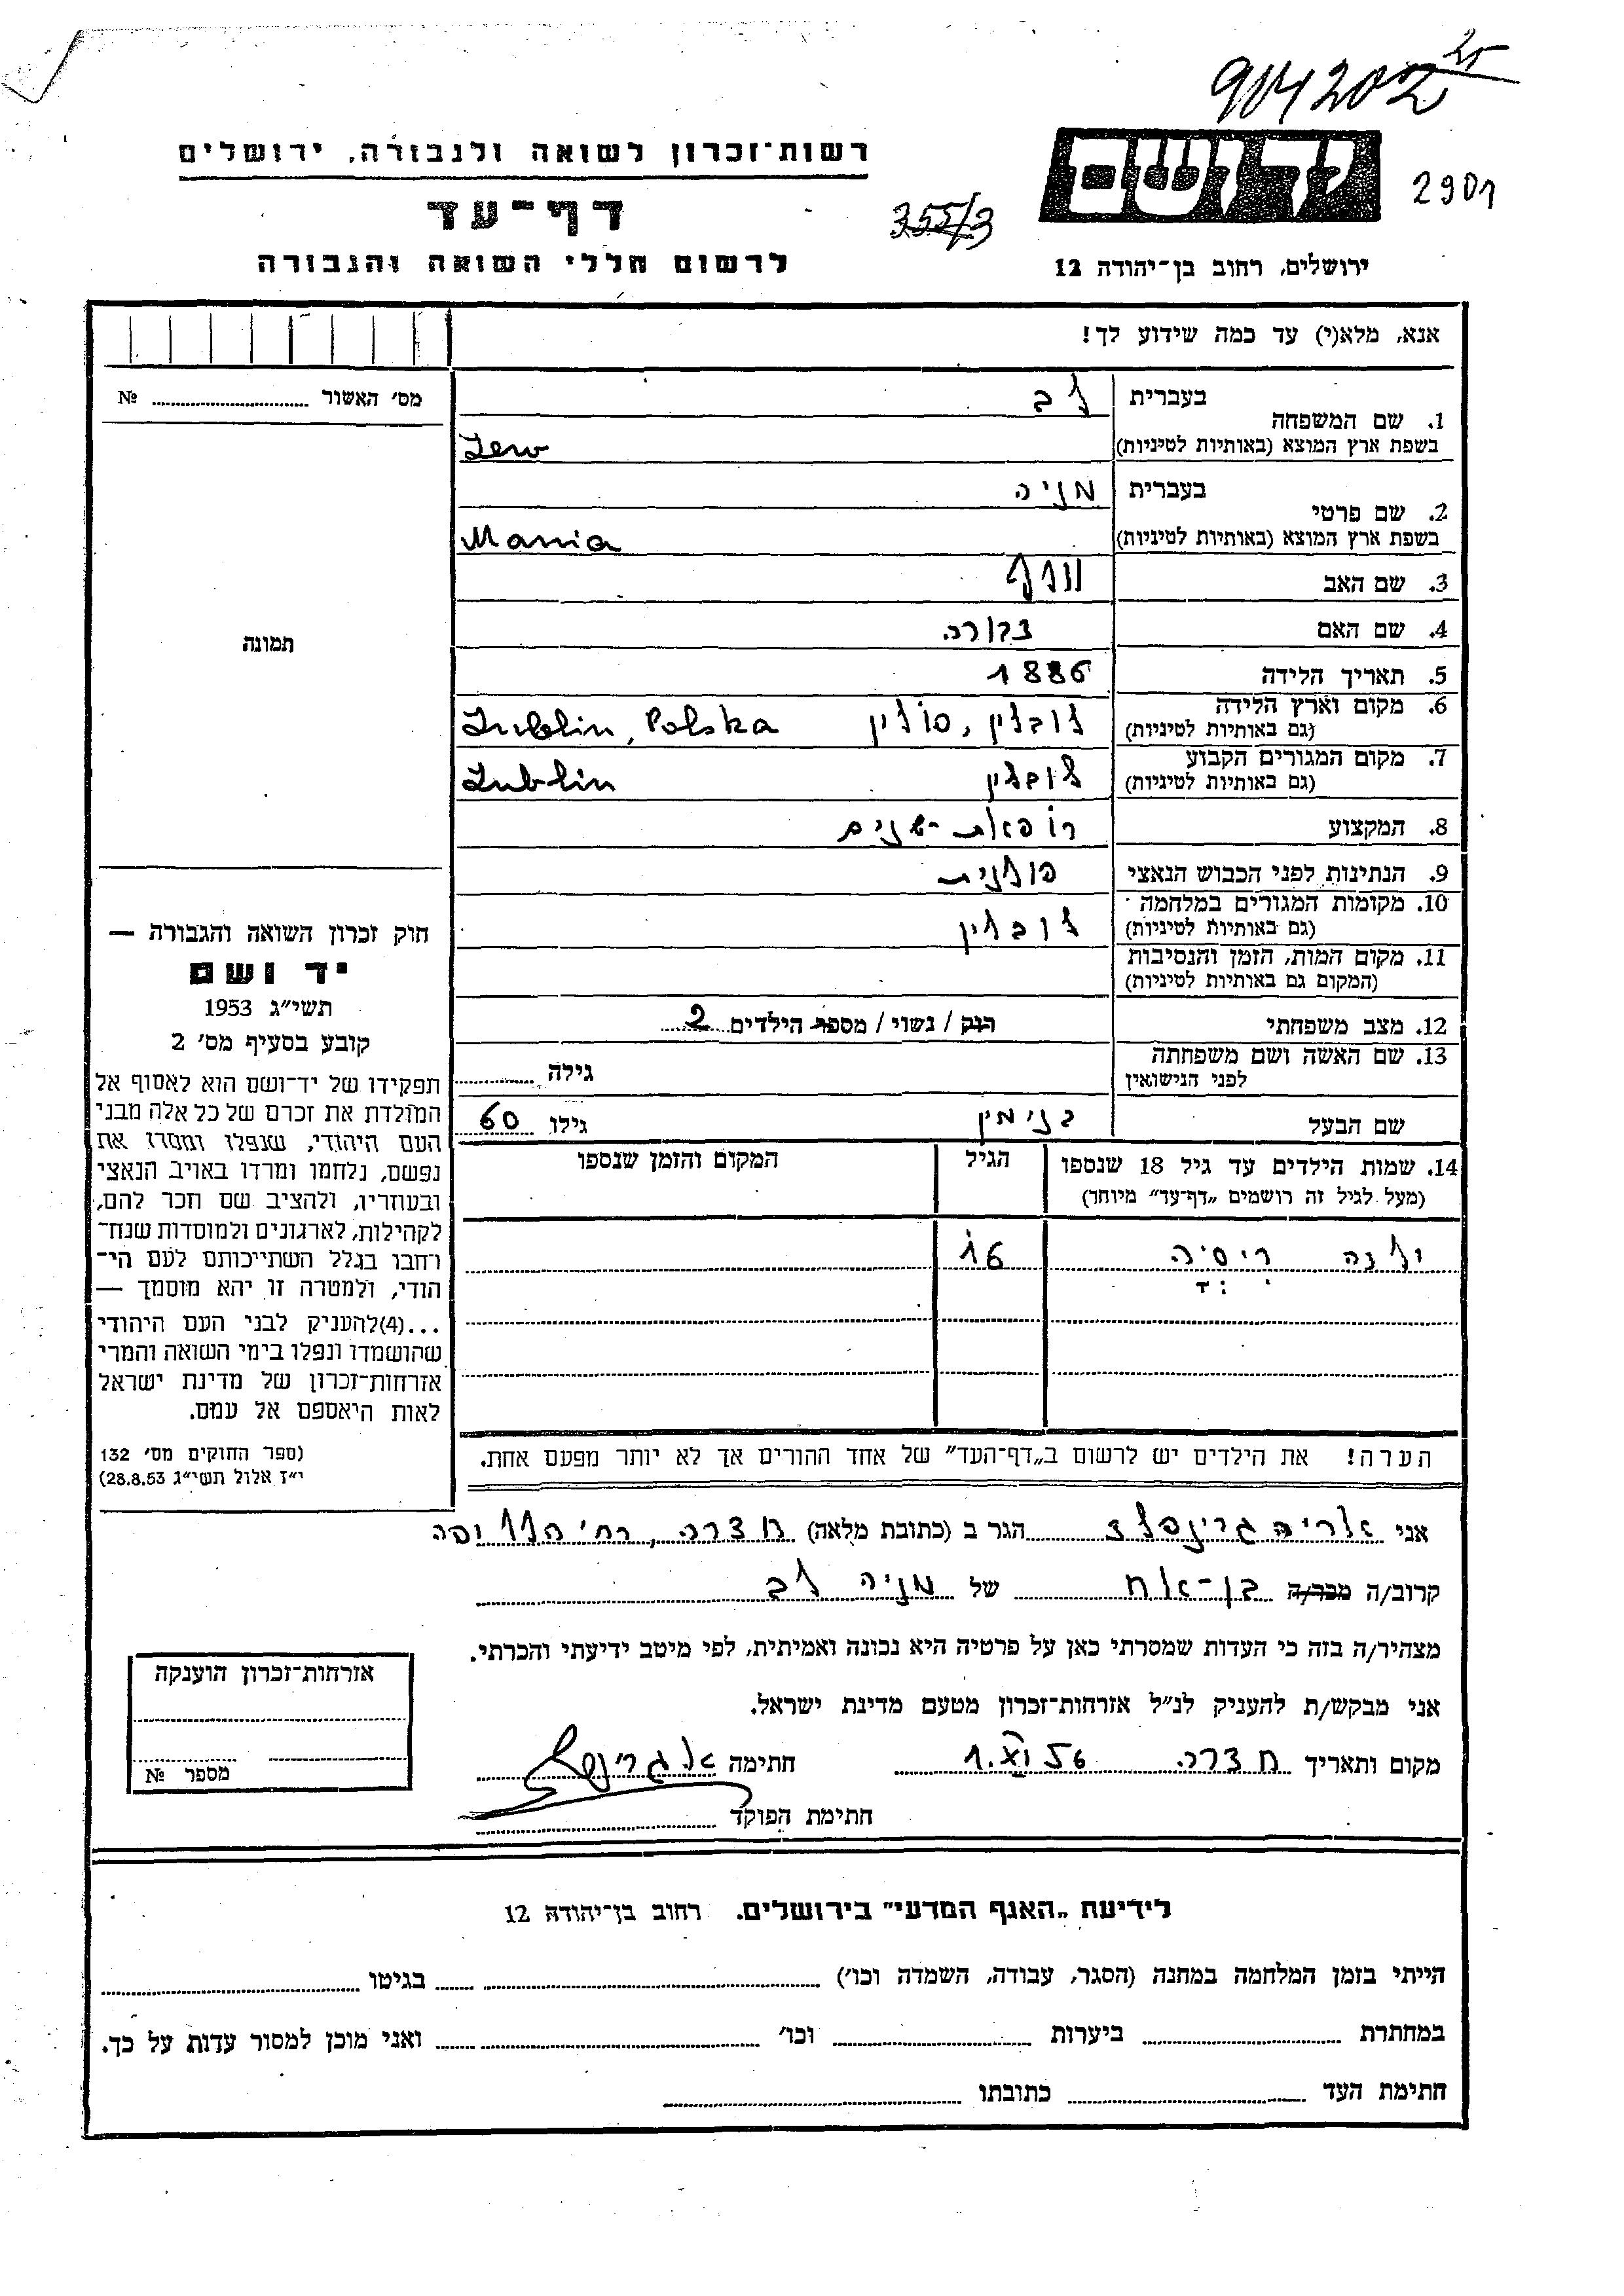 904202 25
רשות־זכרון לשואה ולגבורה, ירושלים
יד ושם
2901
דף־עד
355/3
לרשום חללי השואה והגבורה
ירושלים, רחוב בן־יהודה 12
אנא, מלא(י) עד כמה שידוע לך!
מס׳ האשור № ........
1. שם המשפחה
בעברית לב
בשפת ארץ המוצא (באותיות לטיניות) Lew
2. שם פרטי
בעברית מניה
בשפת ארץ המוצא (באותיות לטיניות) Mania
3. שם האב וולף
4. שם האם
5. תאריך הלידה 1886
6. מקום וארץ הלידה
(גם באותיות לטיניות) לובלין, פולין Lublin, Polska
7. מקום המגורים הקבוע
(גם באותיות לטיניות) לובלין Lublin
8. המקצוע רופאת-שנים
9. הנתינות לפני הכבוש הנאצי פולנית
10. מקומות המגורים במלחמה
(גם באותיות לטיניות) לובלין
11. מקום המות, הזמן והנסיבות
(המקום גם באותיות לטיניות)
12. מצב משפחתי רווק / נשוי / מספר הילדים 2
13. שם האשה ושם משפחתה
לפני הנישואין גילה ........
שם הבעל בנימין גילו 60
14. שמות הילדים עד גיל 18 שנספו הגיל המקום והזמן שנספו
(מעל לגיל זה רושמים „דף־עד״ מיוחד)
16
הערה! את הילדים יש לרשום ב„דף־העד״ של אחד ההורים אך לא יותר מפעם אחת.
תמונה
חוק זכרון השואה והגבורה —
יד ושם
תשי״ג 1953
קובע בסעיף מס׳ 2
תפקידו של יד־ושם הוא לאסוף אל
המולדת את זכרם של כל אלה מבני
העם היהודי, שנפלו ומסרו את
נפשם, נלחמו ומרדו באויב הנאצי
ובעוזריו, ולהציב שם וזכר להם,
לקהילות, לארגונים ולמוסדות שנח־
רחבו בגלל השתייכותם לעם הי־
הודי, ולמטרה זו יהא מוסמך —
...(4)להעניק לבני העם היהודי
שהושמדו ונפלו בימי השואה והמרי
אזרחות־זכרון של מדינת ישראל
לאות היאספם אל עמם.
(ספר החוקים מס׳ 132
י״ז אלול תשי״ג 28.8.53)
אני אריה גרינפלד הגר ב (כתובת מלאה) חדרה, רח׳
קרוב/ה מכר/ה בן-אח של מניה לב
מצהיר/ה בזה כי העדות שמסרתי כאן על פרטיה היא נכונה ואמיתית, לפי מיטב ידיעתי והכרתי.
אני מבקש/ת להעניק לנ״ל אזרחות־זכרון מטעם מדינת ישראל.
מקום ותאריך חדרה 1.XI 56 חתימה א. גרינפלד
חתימת הפוקד ........
אזרחות־זכרון הוענקה
מספר №
לידיעת „האגף המדעי״ בירושלים. רחוב בן־יהודה 12
הייתי בזמן המלחמה במחנה (הסגר, עבודה, השמדה וכו׳) ........ בגיטו ........
במחתרת ........ ביערות ........ וכו׳ ........ ואני מוכן למסור עדות על כך.
חתימת העד ........ כתובתו ........